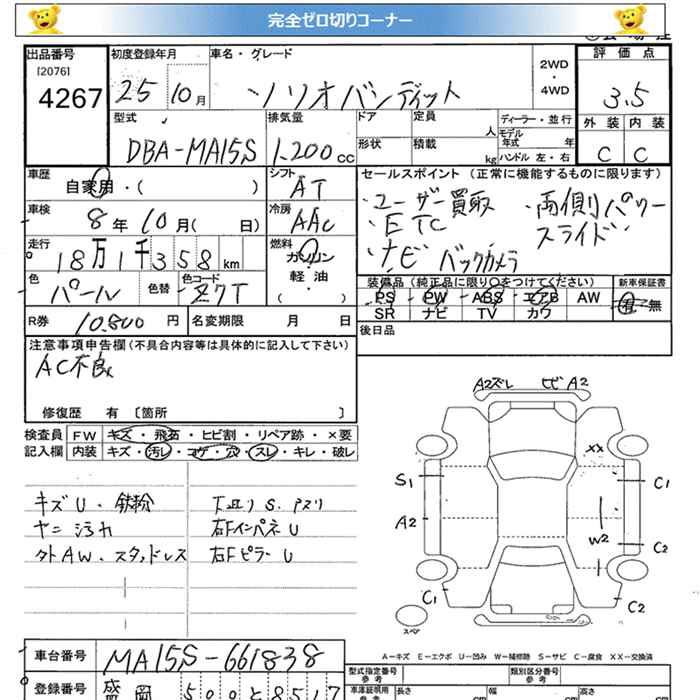 完全ゼロ切りコーナー
出品番号
[2076]
4267
初度登録年月
25 10月
車名・グレード
ソリオバンディット
2WD
・
4WD
評価点
3.5
外装 内装
C C
型式
DBA-MA15S
排気量
1,200cc
ドア
定員
人
形状
積載
kg
ディーラー・並行
モデル
年式 年
ハンドル 左・右
車歴
自家用・( )
シフト
AT
車検
8年10月( 日)
冷房
AAC
走行
18万1千358km
燃料
ガソリン
軽・油
( )
色
パール
色替
色コード
Z7T
R券 10,800円
名変期限 月 日
セールスポイント (正常に機能するものに限ります)
・ユーザー買取 ・両側パワー
・ETC スライド
・ナビ バックカメラ
装備品(純正品に限り○をつけてください)
新車保証書
PS PW ABS エアB AW
SR ナビ TV カワ
有・無
後日品
注意事項申告欄(不具合内容等は具体的に記入して下さい)
AC不良
修復歴 有 〔箇所 〕
検査員
記入欄
FW キズ・飛石・ヒビ割・リペア跡・×要
内装 キズ・汚レ・コゲ・穴・スレ・キレ・破レ
キズU・鉄粉
ヤニ汚れ
クトAW・スタッドレス
下廻りS.アズリ
右FインパネU
右FピラーU
A2ズレ ヒビA2
XX
S1
C1
A2
W2
C2
C1
C2
スペア
A－キズ E－エクボ U－凹み W－補修跡 S－サビ C－腐食 XX－交換済
車台番号
MA15S-661838
登録番号
盛岡 500 と 8517
型式指定番号
参考
類別区分番号
参考
車庫証明用
参考
長さ cm
幅 cm
高さ cm